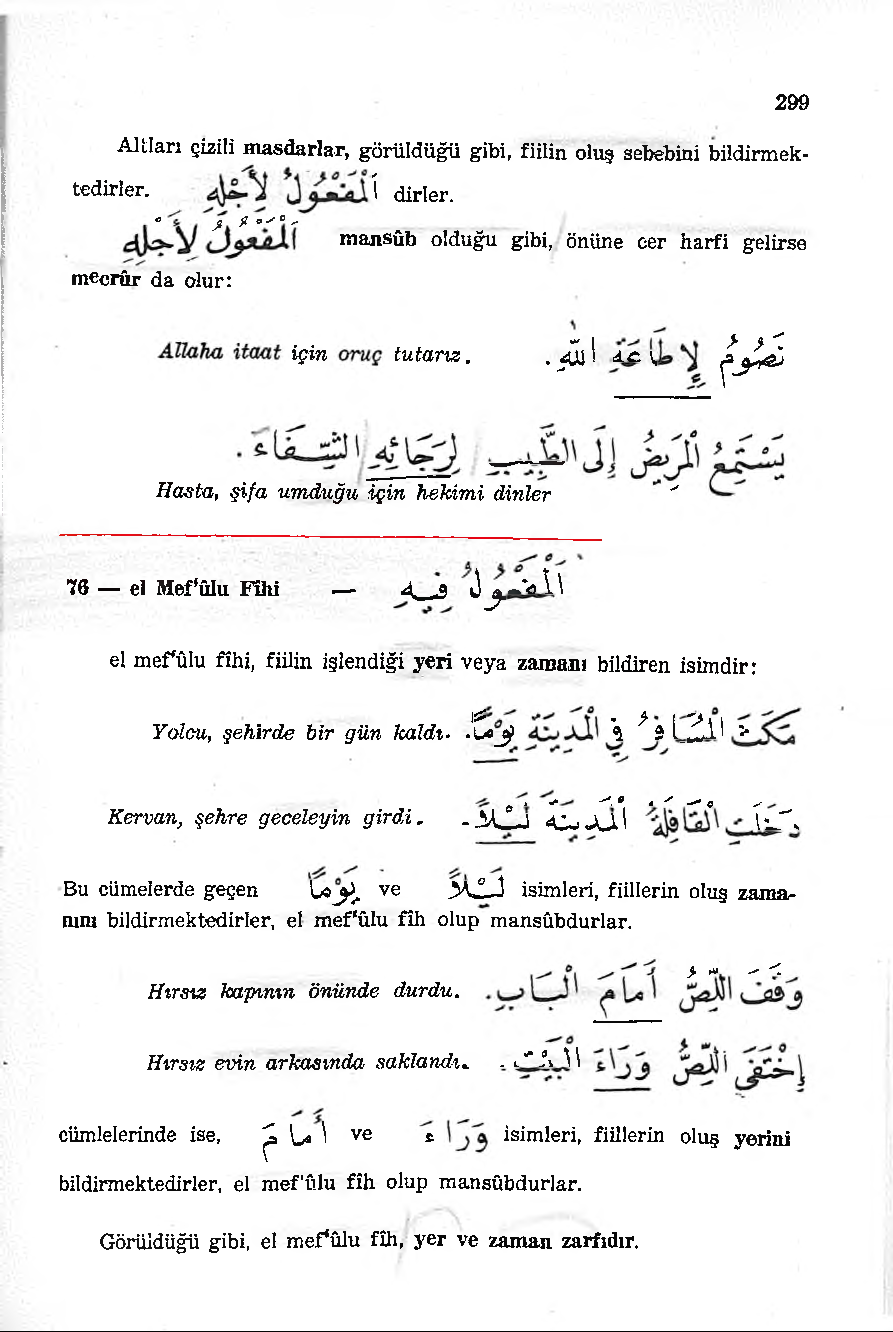 299
Altları çizili masdarlar, görüldüğü gibi, fiilin oluş sebebini bildirmek-
tedirler. اَلْمَفْعُولُ لِأَجْلِهِ dirler.
اَلْمَفْعُولُ لِأَجْلِهِ mansûb olduğu gibi, önüne cer harfi gelirse
mecrûr da olur:
Allaha itaat için oruç tutarız. نَصُومُ لِإِطَاعَةِ اللهِ.
يَسْتَمِعُ الْمَرِيضُ إِلَى الطَّبِيبِ لِرَجَائِهِ الشِّفَاءَ.
Hasta, şifa umduğu için hekimi dinler
76 — el Mef'ûlu Fîhi — اَلْمَفْعُولُ فِيهِ
el mef'ûlu fîhi, fiilin işlendiği yeri veya zamanı bildiren isimdir:
Yolcu, şehirde bir gün kaldı. مَكَثَ الْمُسَافِرُ فِي الْمَدِينَةِ يَوْمًا.
Kervan, şehre geceleyin girdi. دَخَلَتِ الْقَافِلَةُ الْمَدِينَةَ لَيْلاً.
Bu cümelerde geçen يَوْمًا ve لَيْلاً isimleri, fiillerin oluş zama-
nını bildirmektedirler, el mef'ûlu fîh olup mansûbdurlar.
Hırsız kapının önünde durdu. وَقَفَ اللِّصُّ أَمَامَ الْبَابِ.
Hırsız evin arkasında saklandı. إِخْتَفَى اللِّصُّ وَرَاءَ الْبَيْتِ.
cümlelerinde ise, أَمَامَ ve وَرَاءَ isimleri, fiillerin oluş yerini
bildirmektedirler, el mef'ûlu fîh olup mansûbdurlar.
Görüldüğü gibi, el mef'ûlu fîh, yer ve zaman zarfıdır.